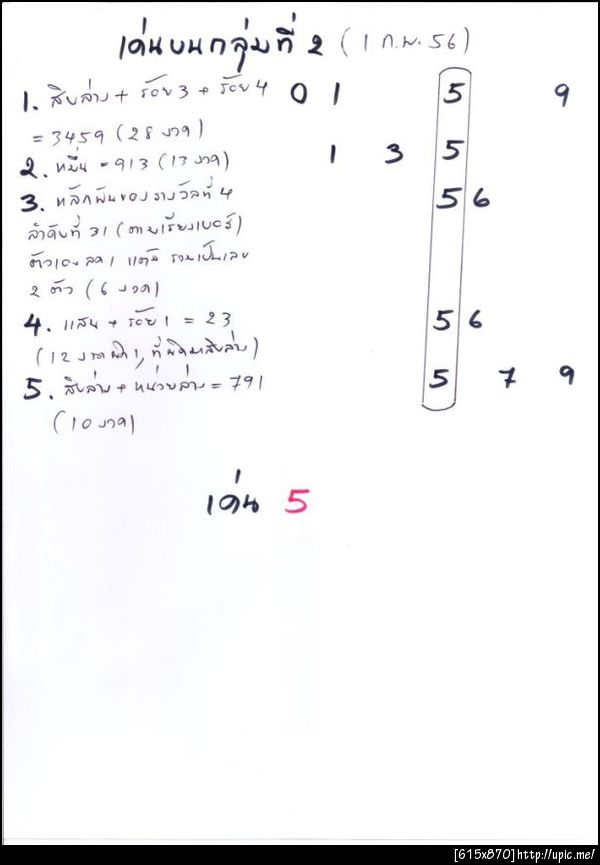 เด่นบนกลุ่มที่ 2 (1 ก.พ. 56)
1. สิบล่าง + ร้อย 3 + ร้อย 4 0 1 5 9
= 3459 (28 งวด)
2. หมื่น = 913 (13 งวด) 1 3 5
3. หลักพันของรางวัลที่ 4 5 6
ลำดับที่ 31 (ตามเรียงเบอร์)
ตัวเอง ลด 1 แต้ม รวมเป็นเลข
2 ตัว (6 งวด)
4. แสน + ร้อย 1 = 23 5 6
(12 งวด ผิด 1, ที่ผิดมาสิบล่าง)
5. สิบล่าง + หน่วยล่าง = 791 5 7 9
(10 งวด)
เด่น 5
[615x870]http://upic.me/